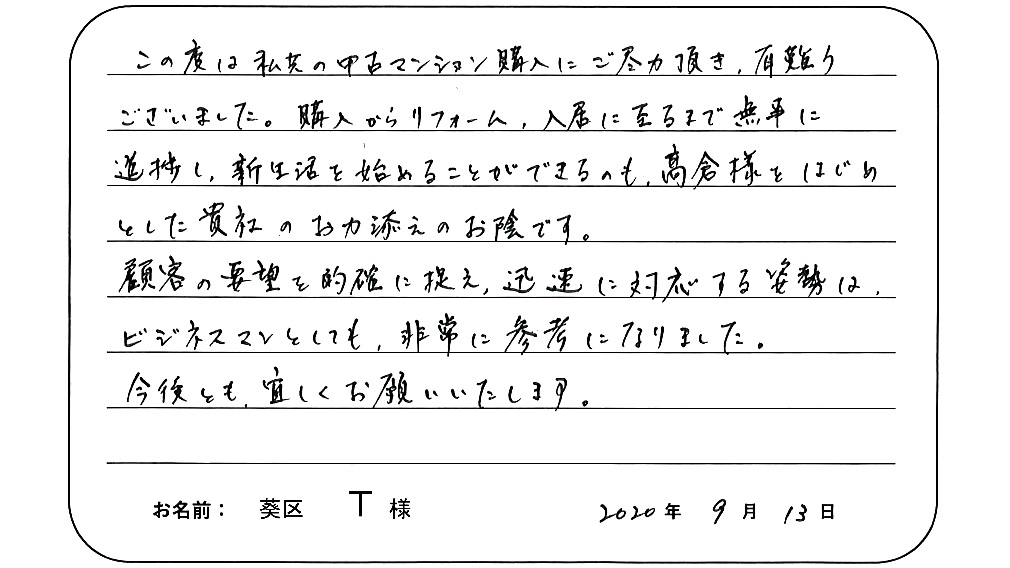 この度は私共の中古マンション購入にご尽力頂き、有難う
ございました。購入からリフォーム、入居に至るまで無事に
進捗し、新生活を始めることができるのも、高倉様をはじめ
とした貴社のお力添えのお陰です。
顧客の要望を的確に捉え、迅速に対応する姿勢は、
ビジネスマンとしても、非常に参考になりました。
今後とも、宜しくお願いいたします。
お名前： 葵区 T 様 2020年 9月 13日